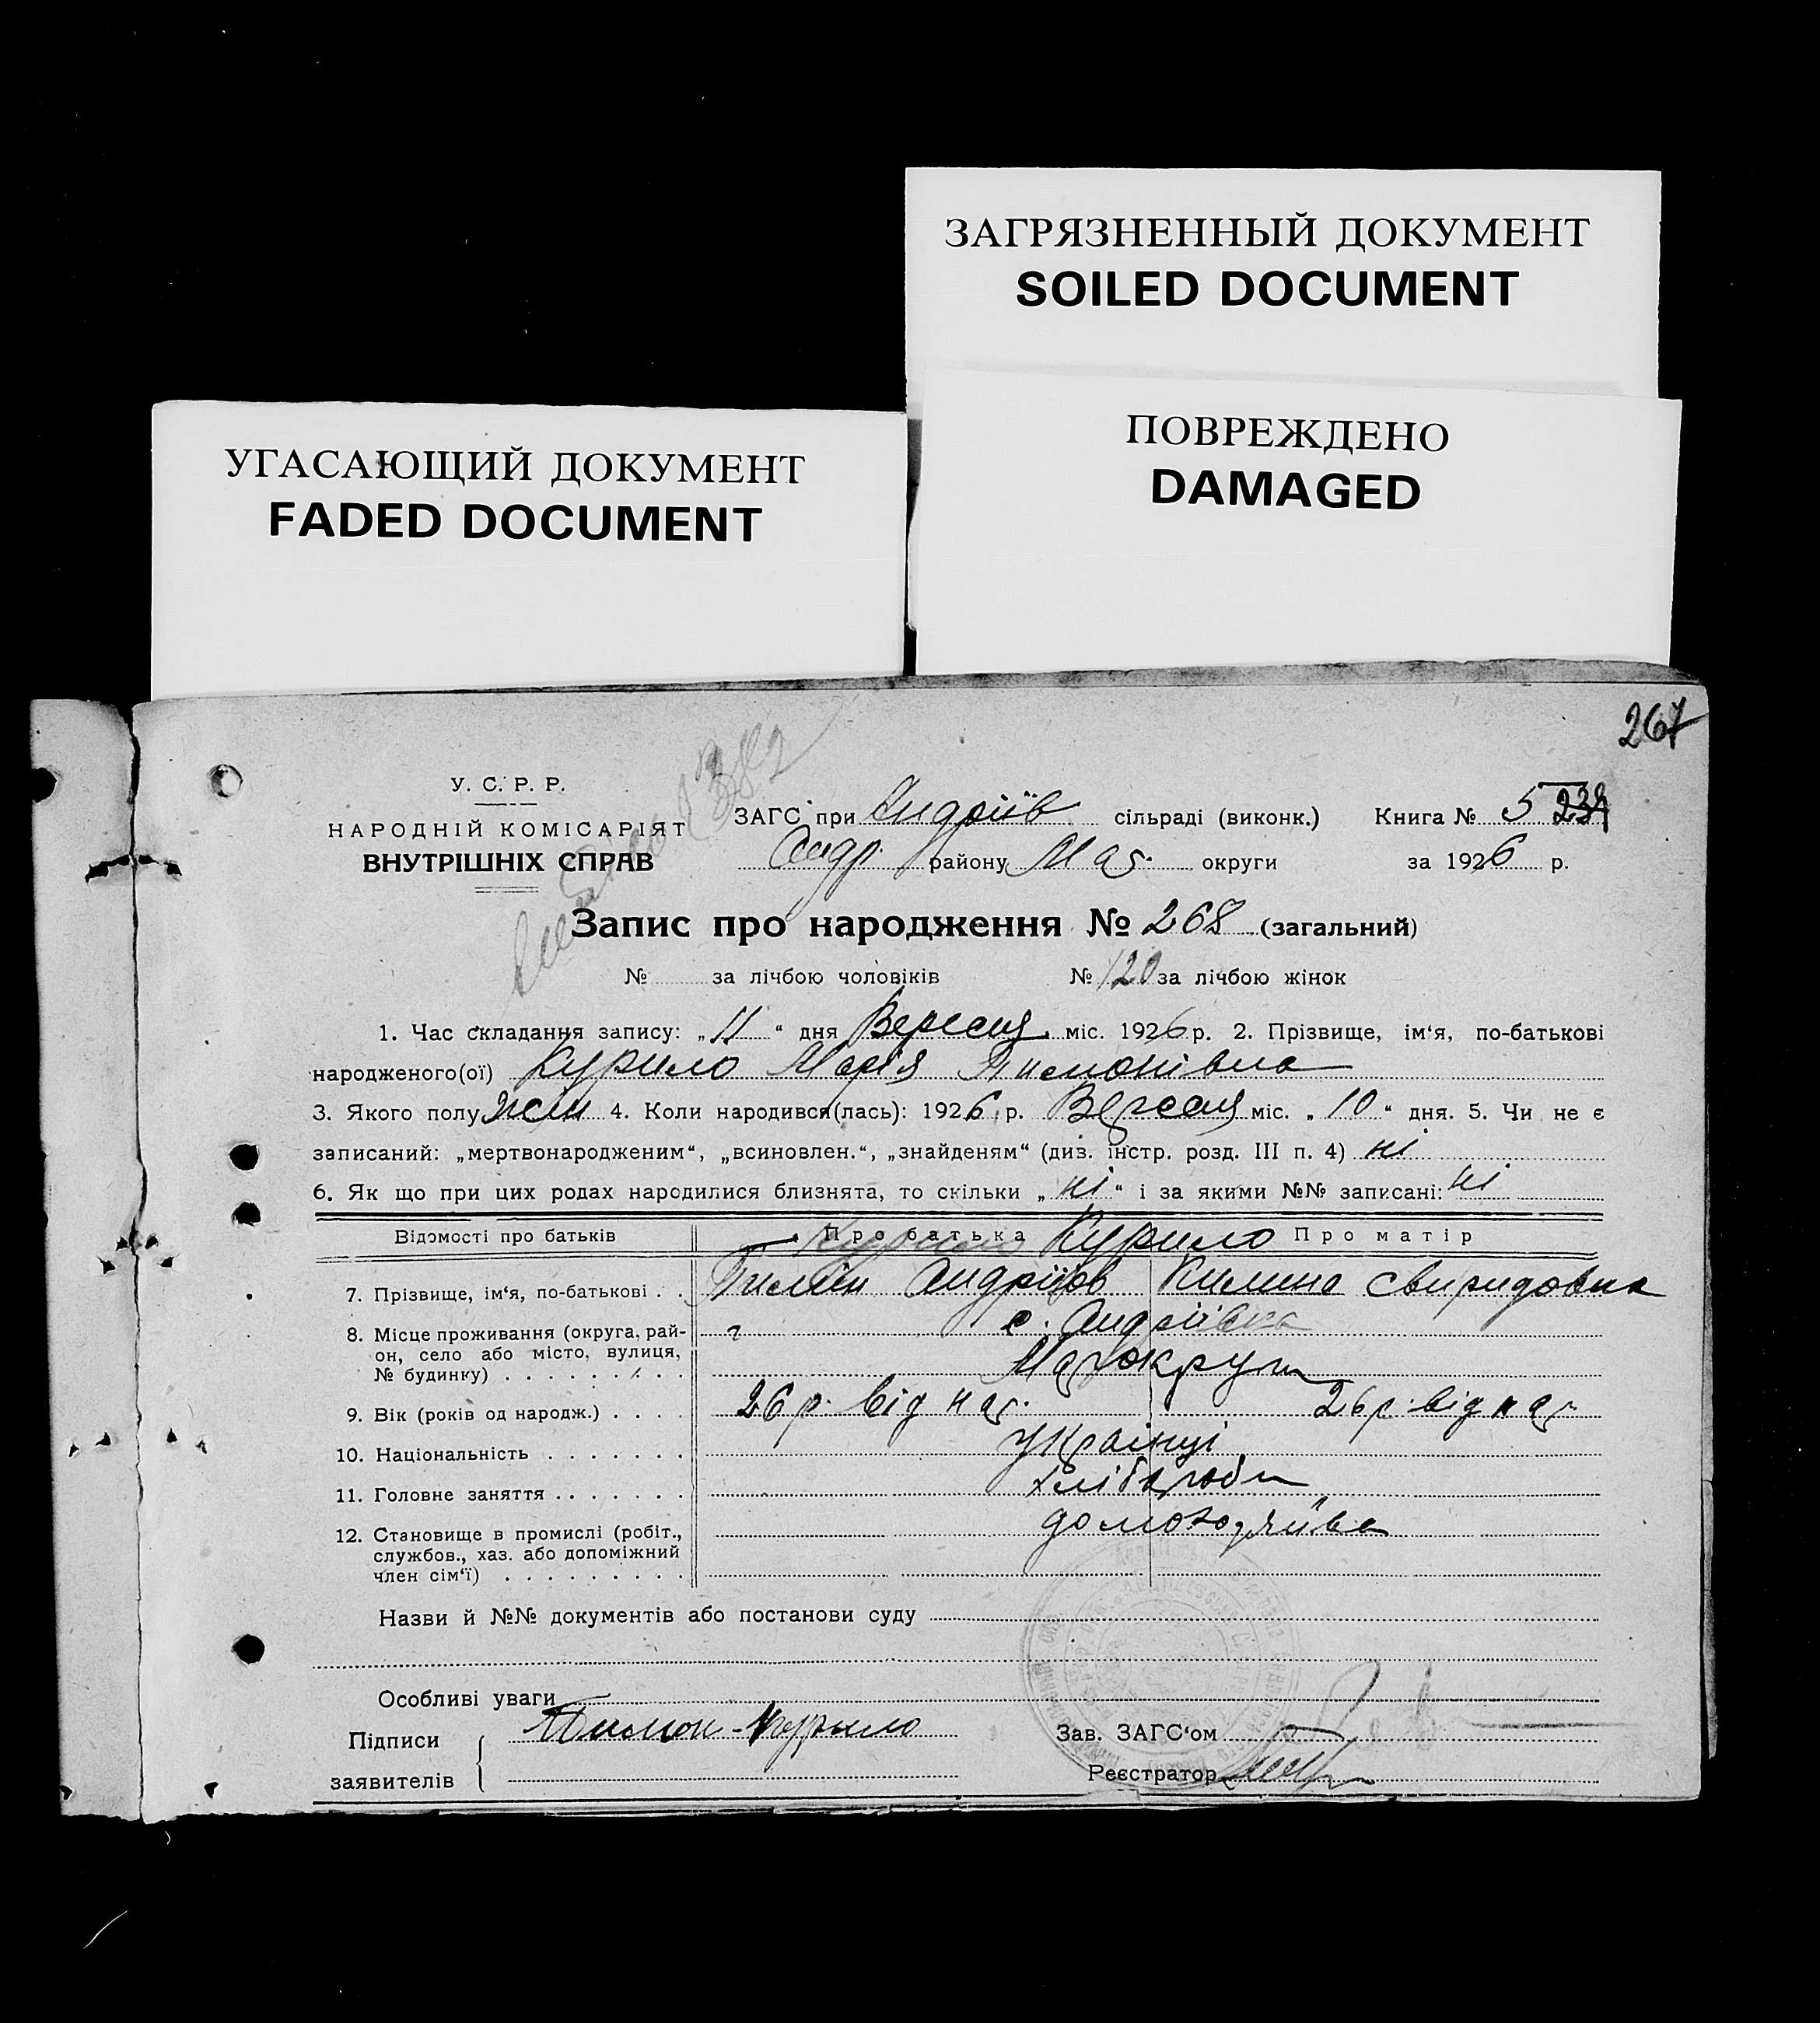 ЗАГРЯЗНЕННЫЙ ДОКУМЕНТ
SOILED DOCUMENT
ПОВРЕЖДЕНО
DAMAGED
УГАСАЮЩИЙ ДОКУМЕНТ
FADED DOCUMENT
267
У. С. Р. Р.
НАРОДНІЙ КОМІСАРІЯТ
ВНУТРІШНІХ СПРАВ
ЗАГС при Андріїв сільраді (виконк.) Книга № 5
Андр. району Мар. округи за 1926 р.
Запис про народження № 268 (загальний)
№ за лічбою чоловіків № 120 за лічбою жінок
1. Час складання запису: „11“ дня Вересня міс. 1926 р. 2. Прізвище, ім‘я, по-батькові
народженого(ої) Курило Марія Тимонівна
3. Якого полу жен 4. Коли народився(лась): 1926 р. Вересня міс. „10“ дня. 5. Чи не є
записаний: „мертвонародженим“, „всиновлен.“, „знайденям“ (див. інстр. розд. III п. 4) ні
6. Як що при цих родах народилися близнята, то скільки „ні“ і за якими №№ записані: ні
Відомості про батьків Про батька Курило Про матір
7. Прізвище, ім‘я, по-батькові . . Тимін Андріїов Килина Свиридовна
8. Місце проживання (округа, рай-
он, село або місто, вулиця,
№ будинку) . . . . . . . . .
с. Андріївка
Мар округи
9. Вік (років од народж.) . . . . 26 р. від нар. 26 р. від нар
10. Національність . . . . . . . українці
11. Головне заняття . . . . . . . хлібороби
12. Становище в промислі (робіт.,
службов., хаз. або допоміжний
член сім‘ї) . . . . . . . . .
Назви й №№ документів або постанови суду
Особливі уваги
Підписи
заявителів
Тимон Курило
Зав. ЗАГС‘ом
Реєстратор